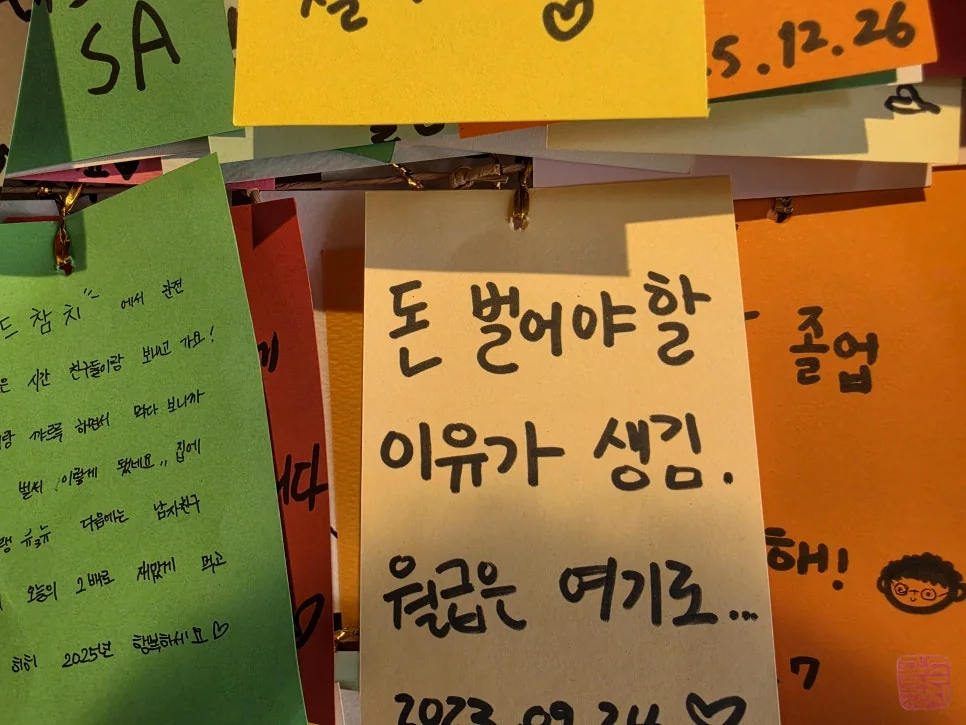 SA
.12.26
드 참치" 에서 완전
은 시간 친구들이랑 보내고 가요!
랑 까르륵 하면서 먹다 보니까
벌써 이렇게 됐네요,, 집에
다음에는 남자친구
오늘의 2배로 재밌게 먹고
히히 2025년 행복하세요♡
돈 벌어야할
이유가 생김.
월급은 여기로...
2023.09.24 ♡
졸업
해!
7